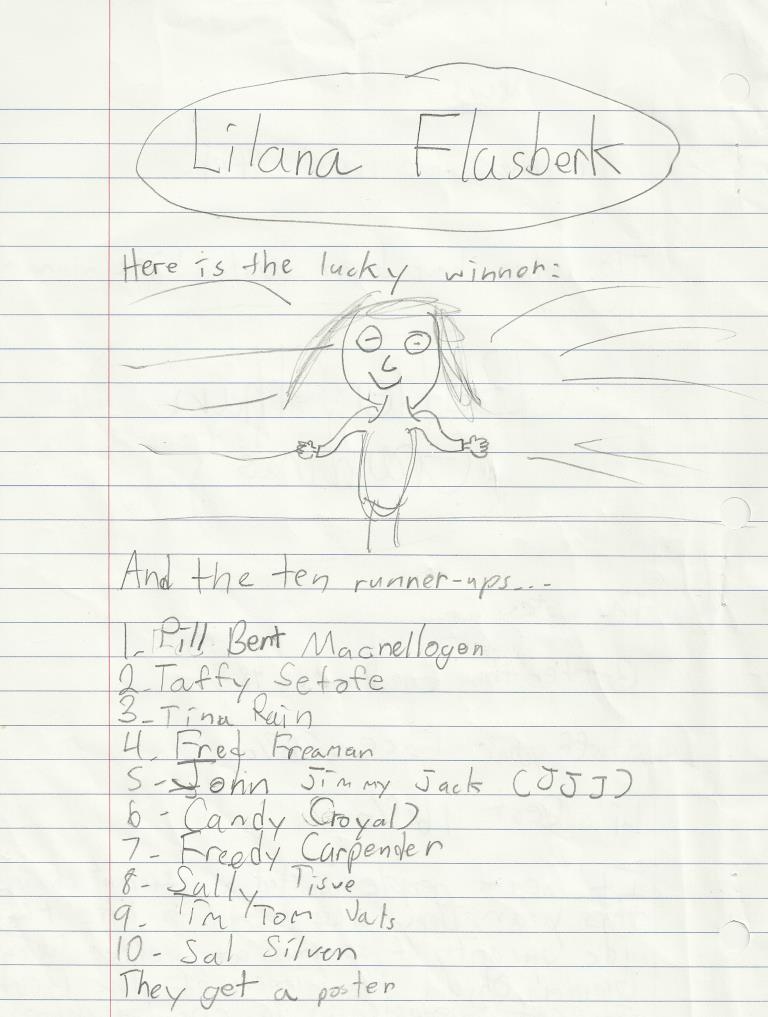 Lilana Flasberk
Here is the lucky winner:
And the ten runner-ups...
1. Pill Bent Macnellogen
2. Taffy Setofe
3- Tina Rain
4. Fred Freaman
5- John Jimmy Jack (JJJ)
6- Candy (royal)
7- Freedy Carpender
8- Sally Tisue
9. Tim Tom Vats
10- Sal Silven
They get a poster